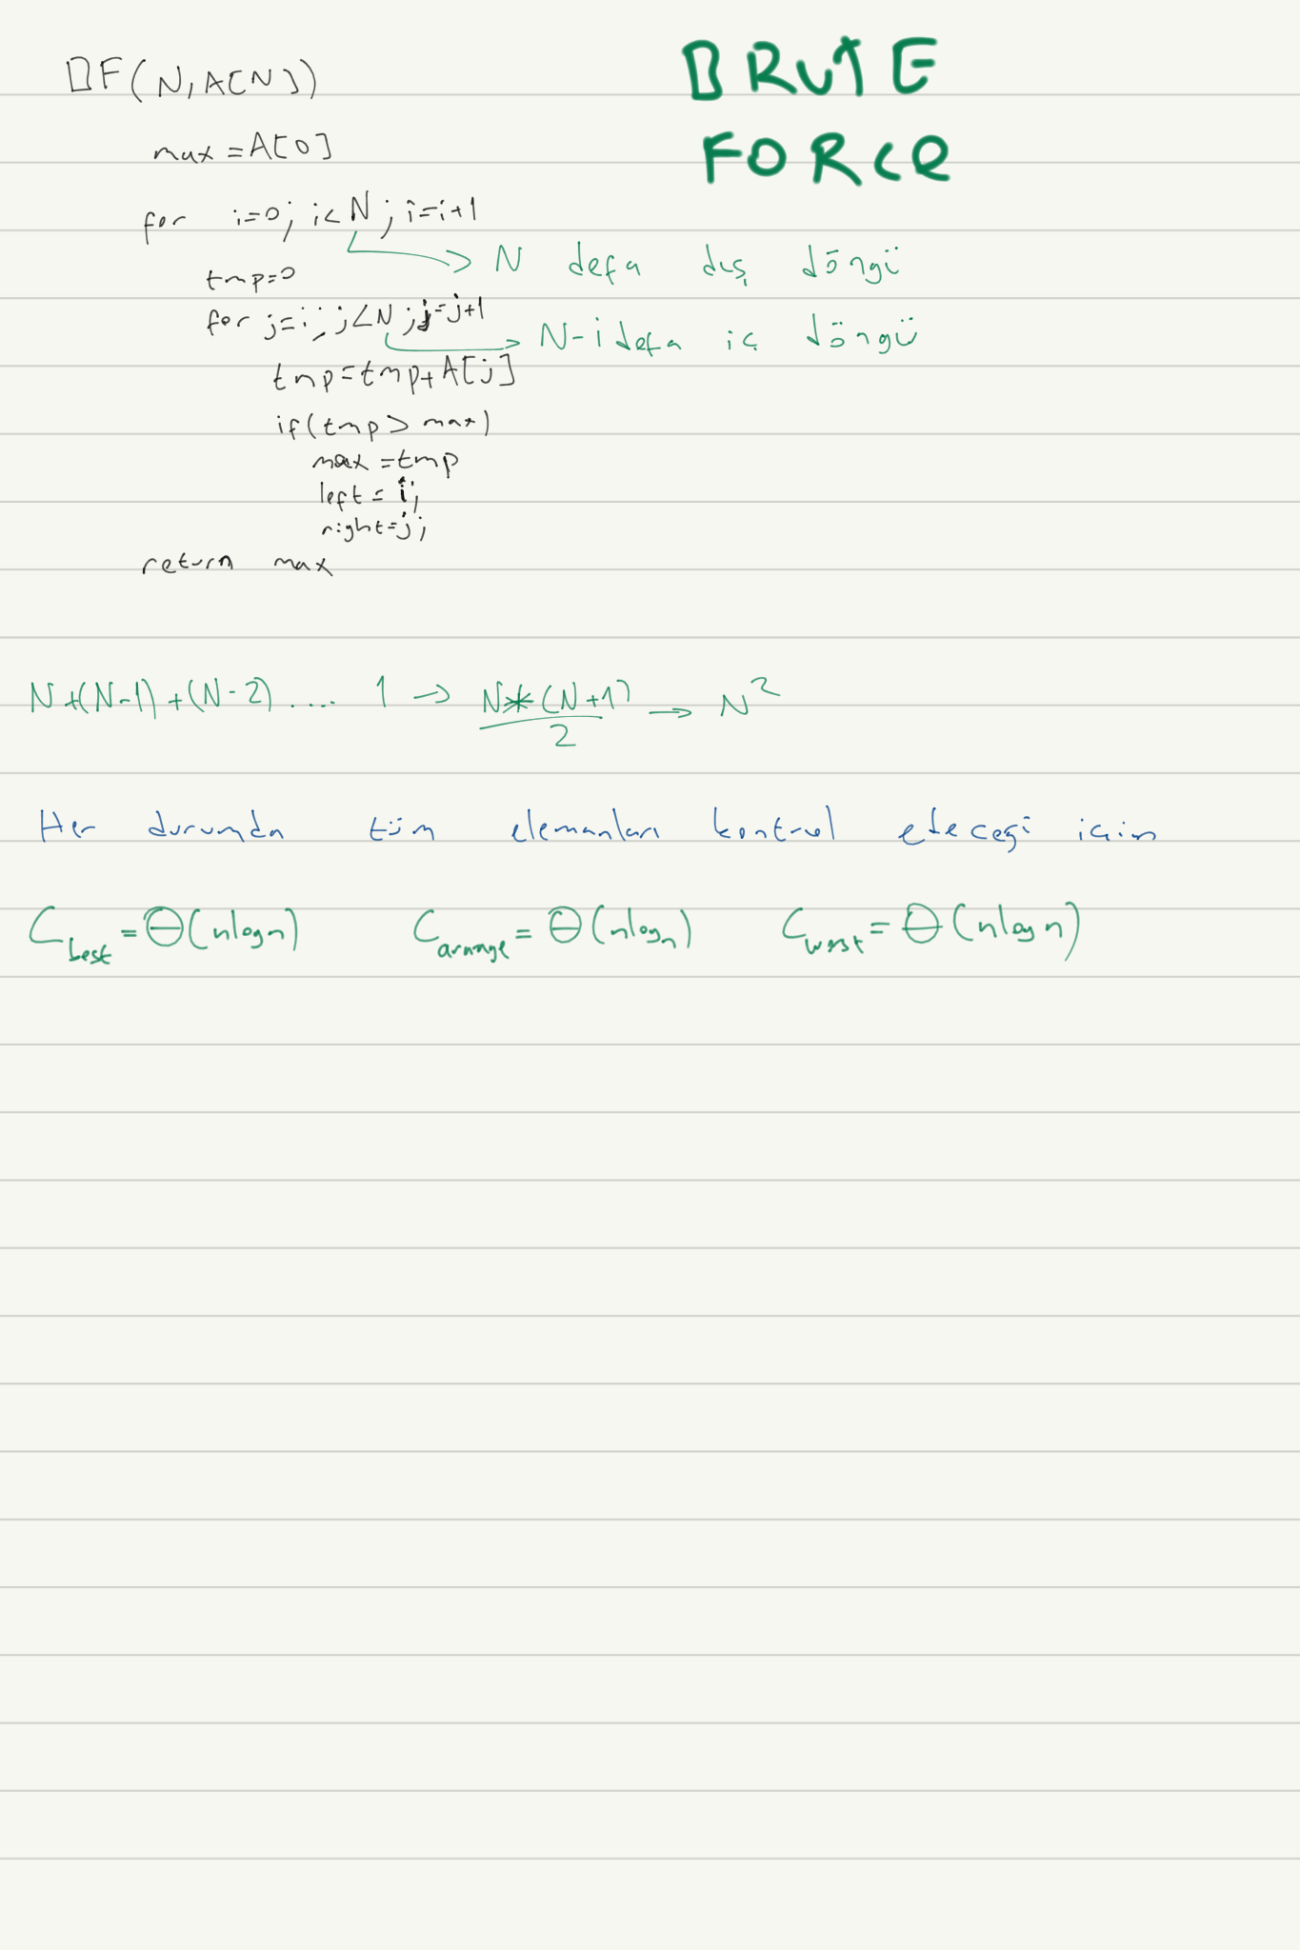 BF(N,A[N])
BRUTE
FORCE
max=A[0]
for i=0; i<N; i=i+1
N defa dış döngü
tmp=0
for j=i; j<N; j=j+1
N-i defa iç döngü
tmp=tmp+A[j]
if(tmp> max)
max=tmp
left= i;
right=j;
return max
N+(N-1)+(N-2).... 1 → N*(N+1)/2 → N²
Her durumda tüm elemanları kontrol edeceği için
C_best=Θ(nlogn) C_average=Θ(nlogn) C_worst=Θ(nlogn)